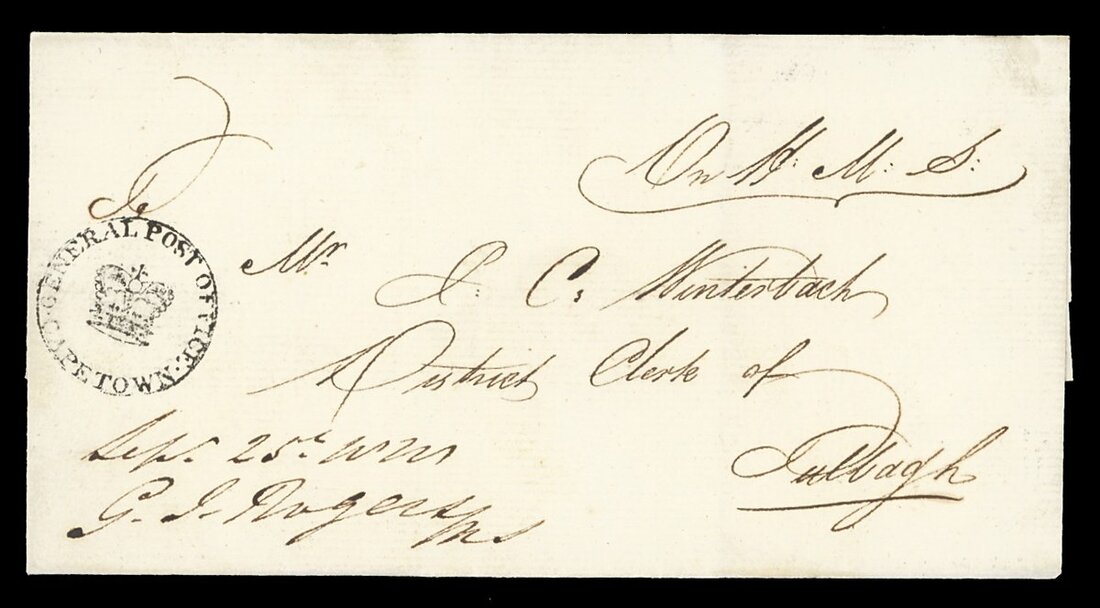 On H: M: S:
To
GENERAL POST OFFICE.
CAPE TOWN.
Mr.
J: C: Winterbach
District Clerk of
Tulbagh
Sept. 25th
G. J. Rogers